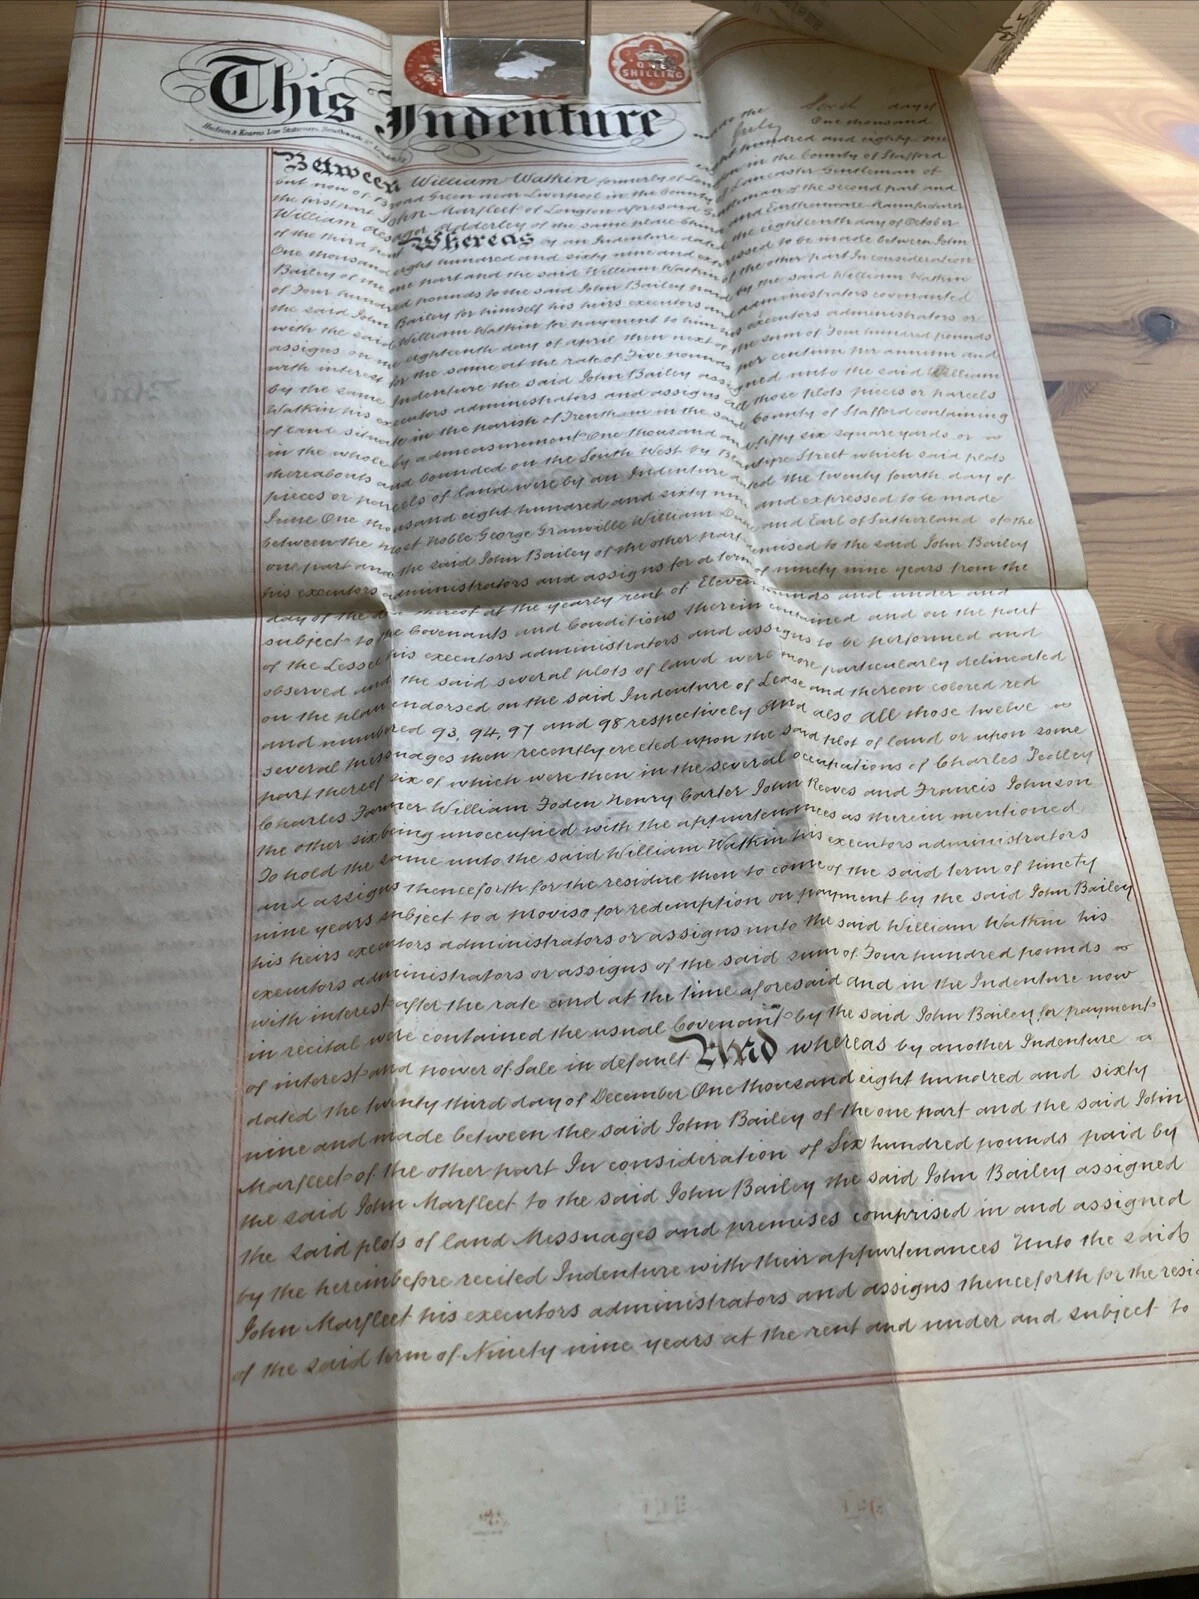 ONE SHILLING
This Indenture made the day of
July One thousand
eight hundred and eighty one
Between William Watkin formerly of in the County of Stafford
but now of Broad Green near Liverpool in the County of Lancaster Gentleman of
the first part John Marfleet of Longton aforesaid of the second part and
William Adderley of the same place and Earthenware Manufacturer
of the third part Whereas by an Indenture dated the eighteenth day of October
One thousand eight hundred and sixty nine and expressed to be made between John
Bailey of the one part and the said William Watkin of the other part In consideration
of Four hundred pounds to the said John Bailey paid by the said William Watkin
the said John Bailey for himself his heirs executors and administrators covenanted
with the said William Watkin for payment to him his executors administrators or
assigns on the eighteenth day of April then next of the sum of Four hundred pounds
with interest for the same at the rate of Five pounds per centum per annum and
by the same Indenture the said John Bailey assigned unto the said William
Watkin his executors administrators and assigns all those plots pieces or parcels
of land situate in the parish of Trentham in the said County of Stafford containing
in the whole by admeasurement One thousand and fifty six square yards or
thereabouts and bounded on the South West by Street which said plots
pieces or parcels of land were by an Indenture dated the twenty fourth day of
June One thousand eight hundred and sixty nine and expressed to be made
between the most Noble George Granville William Duke and Earl of Sutherland of the
one part and the said John Bailey of the other part demised to the said John Bailey
his executors administrators and assigns for a term of ninety nine years from the
day of the date thereof at the yearly rent of Eleven pounds and under and
subject to the Covenants and Conditions therein contained and on the part
of the Lessee his executors administrators and assigns to be performed and
observed and the said several plots of land were more particularly delineated
on the plan endorsed on the said Indenture of Lease and thereon colored red
and numbered 93, 94, 97 and 98 respectively And also All those twelve
several messuages then recently erected upon the said plot of land or upon some
part thereof six of which were then in the several occupations of Charles Pedley
Charles Farmer William Foden Henry Carter John Reeves and Francis Johnson
the other six being unoccupied with the appurtenances as therein mentioned
To hold the same unto the said William Watkin his executors administrators
and assigns thenceforth for the residue then to come of the said term of ninety
nine years subject to a proviso for redemption on payment by the said John Bailey
his heirs executors administrators or assigns unto the said William Watkin his
executors administrators or assigns of the said sum of Four hundred pounds
with interest after the rate and at the time aforesaid and in the Indenture now
in recital were contained the usual Covenants by the said John Bailey for payment
of interest and power of Sale in default And whereas by another Indenture
dated the twenty third day of December One thousand eight hundred and sixty
nine and made between the said John Bailey of the one part and the said John
Marfleet of the other part In consideration of Six hundred pounds paid by
the said John Marfleet to the said John Bailey the said John Bailey assigned
the said plots of land Messuages and premises comprised in and assigned
by the hereinbefore recited Indenture with their appurtenances Unto the said
John Marfleet his executors administrators and assigns thenceforth for the
of the said term of Ninety nine years at the rent and under and subject to